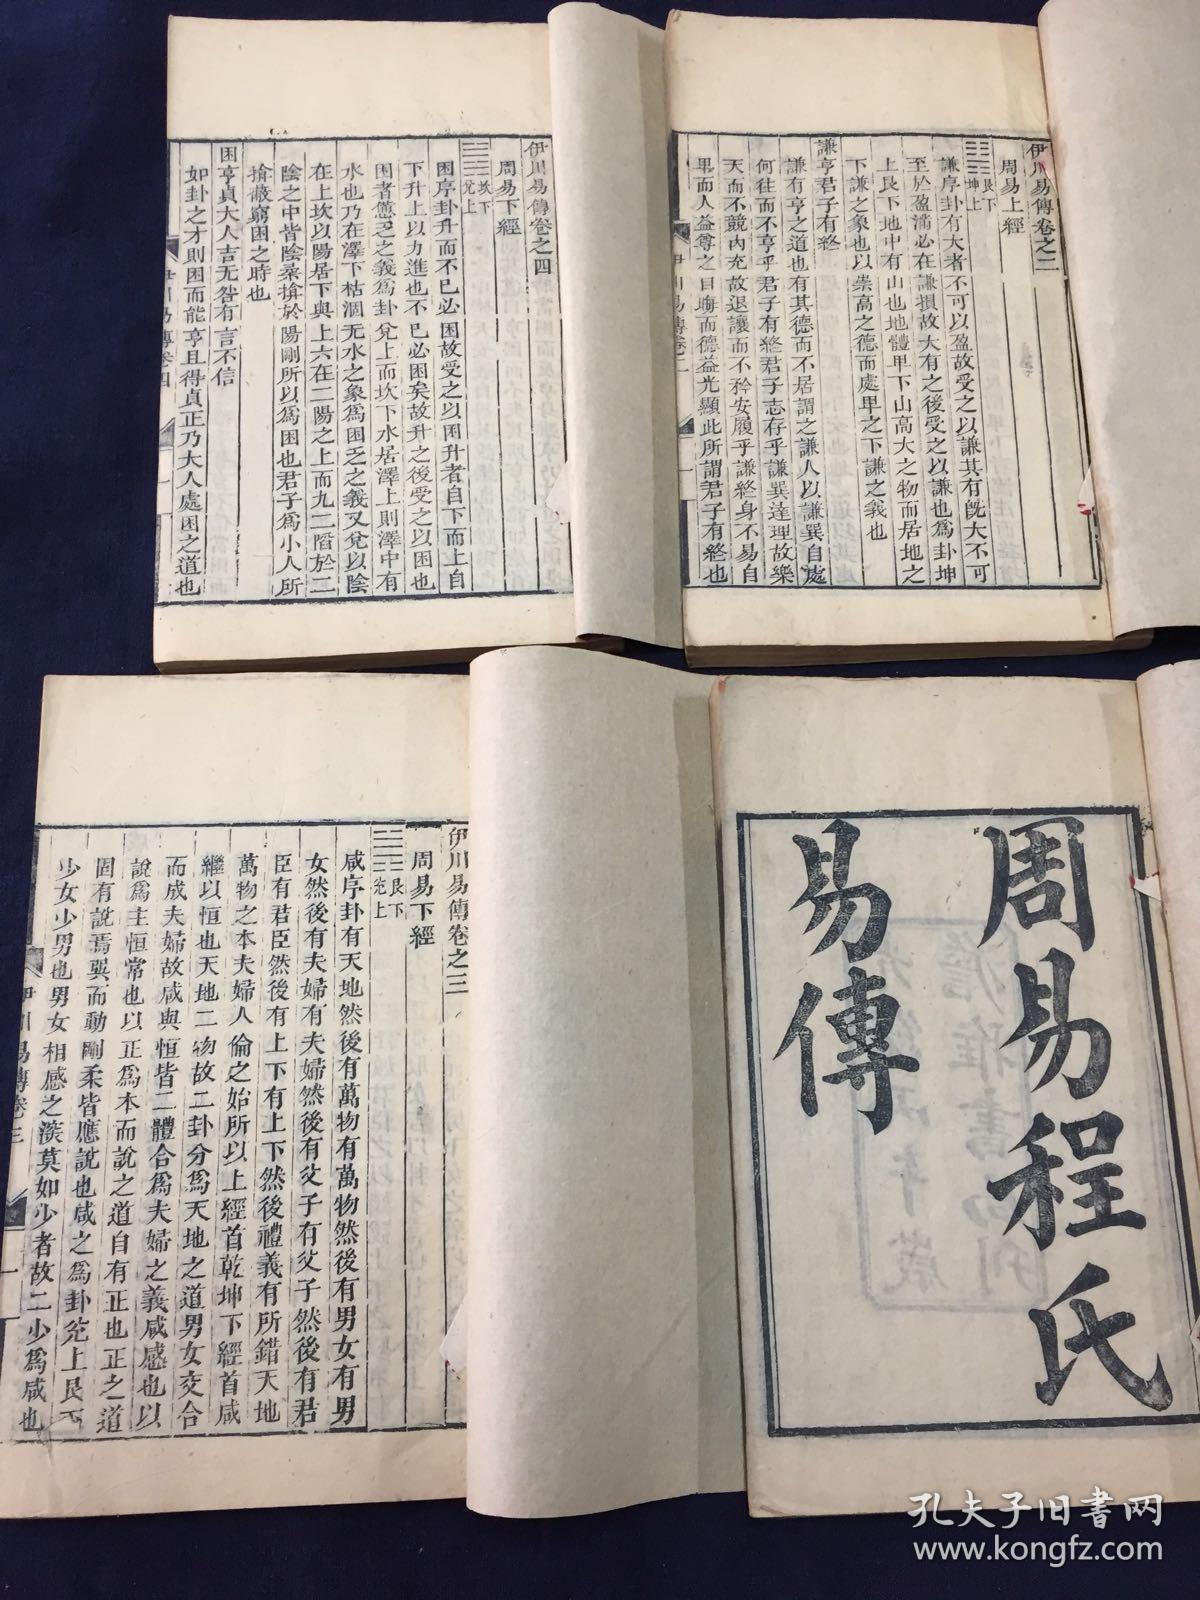 伊川易傳卷之二
周易上經
艮下
坤上
謙序卦有大者不可以盈故受之以謙其有旣大不可
至於盈滿必在謙損故大有之後受之以謙也爲卦坤
上艮下地中有山也地體卑下山高大之物而居地之
下謙之象也以崇高之德而處卑之下謙之義也
謙亨君子有終
謙有亨之道也有其德而不居謂之謙人以謙巽自處
何往而不亨乎君子有終君子志存乎謙巽達理故樂
天而不競內充故退讓而不矜安履乎謙終身不易自
卑而人益尊之自晦而德益光顯此所謂君子有終也
伊川易傳卷二
伊川易傳卷之四
周易下經
坎下
兌上
困序卦升而不已必困故受之以困升者自下而上自
下升上以力進也不已必困矣故升之後受之以困也
困者憊乏之義爲卦兌上而坎下水居澤上則澤中有
水也乃在澤下枯涸无水之象爲困乏之義又兌以陰
在上坎以陽居下與上六在二陽之上而九二陷於二
陰之中皆陰柔揜於陽剛所以爲困也君子爲小人所
揜蔽窮困之時也
困亨貞大人吉无咎有言不信
如卦之才則困而能亨且得貞正乃大人處困之道也
伊川易傳卷四
一
周易程氏
易傳
伊川易傳卷之三
周易下經
艮下
兌上
咸序卦有天地然後有萬物有萬物然後有男女有男
女然後有夫婦有夫婦然後有父子有父子然後有君
臣有君臣然後有上下有上下然後禮義有所錯天地
萬物之本夫婦人倫之始所以上經首乾坤下經首咸
繼以恒也天地二物故二卦分爲天地之道男女交合
而成夫婦故咸與恒皆二體合爲夫婦之義咸感也以
說爲主恒常也以正爲本而說之道自有正也正之道
固有說焉巽而動剛柔皆應說也咸之爲卦兌上艮下
少女少男也男女相感之深莫如少者故二少爲咸也
伊川易傳卷三
一
孔夫子旧书网
www.kongfz.com